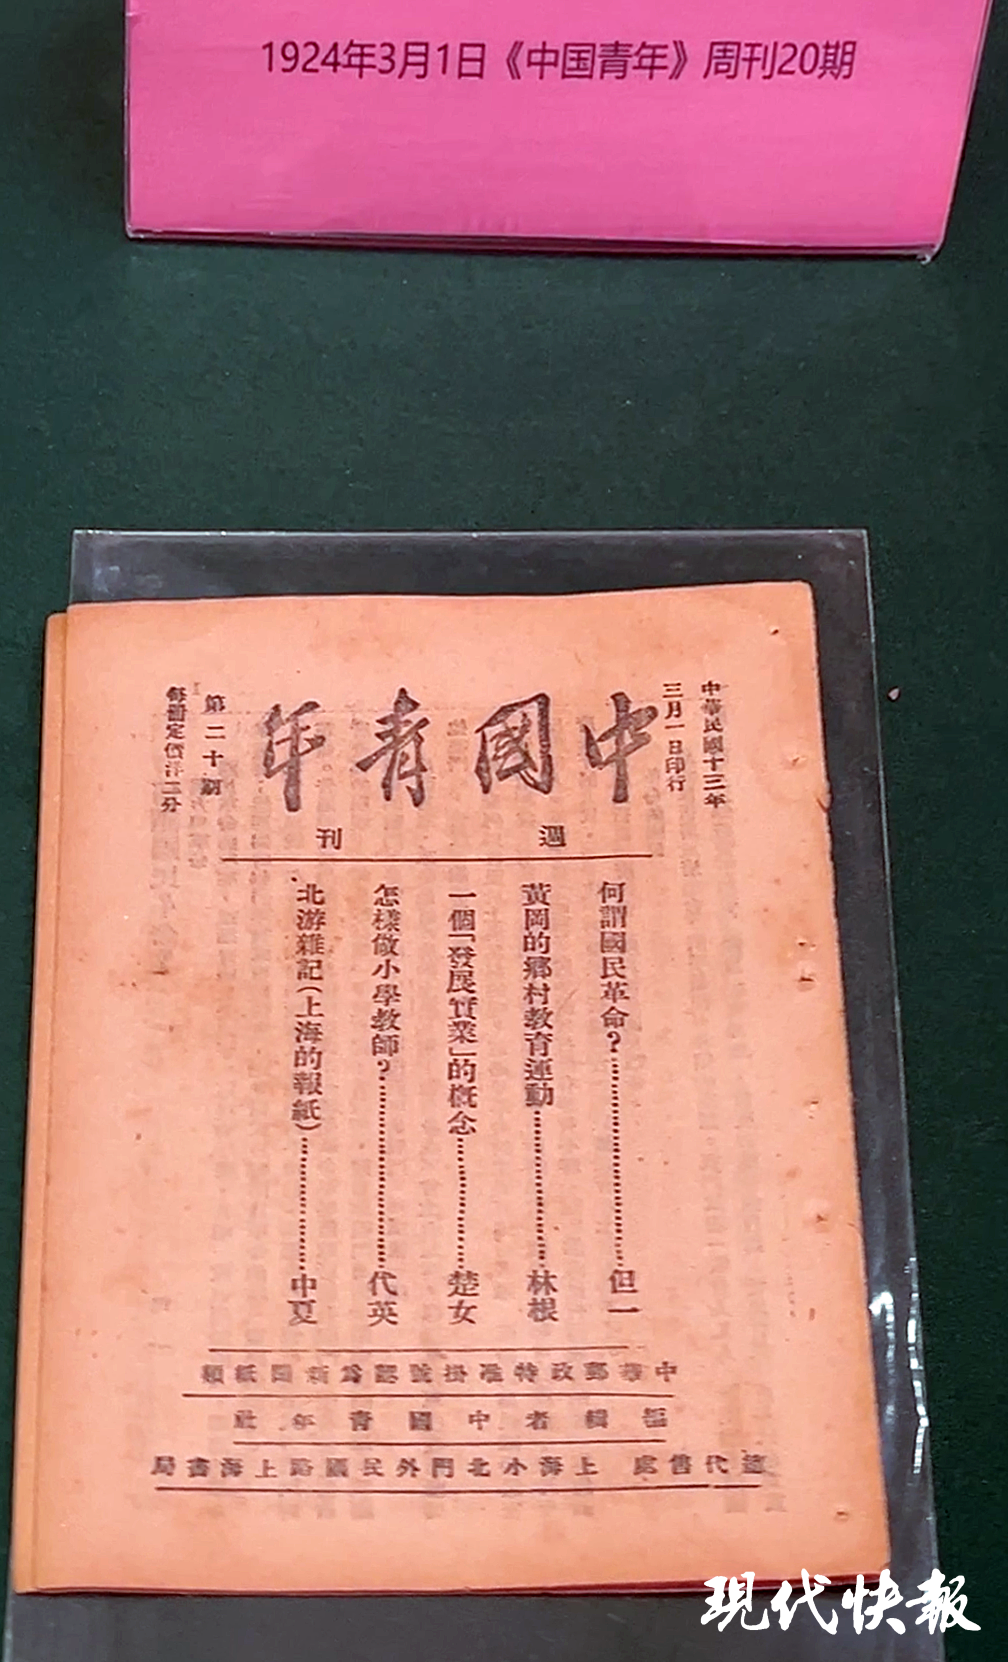 1924年3月1日《中国青年》周刊20期
中華民國十三年
三月一日印行
中國青年
週刊
第二十期
每冊定價洋二分
何謂國民革命?……但一
黃岡的鄉村教育運動……林根
一個「發展實業」的概念……楚女
怎樣做小學教師?……代英
北游雜記(上海的報紙)……中夏
中華郵政特准掛號認爲新聞紙類
編輯者中國青年社
總代售處 上海小北門外民國路上海書局
現代快報